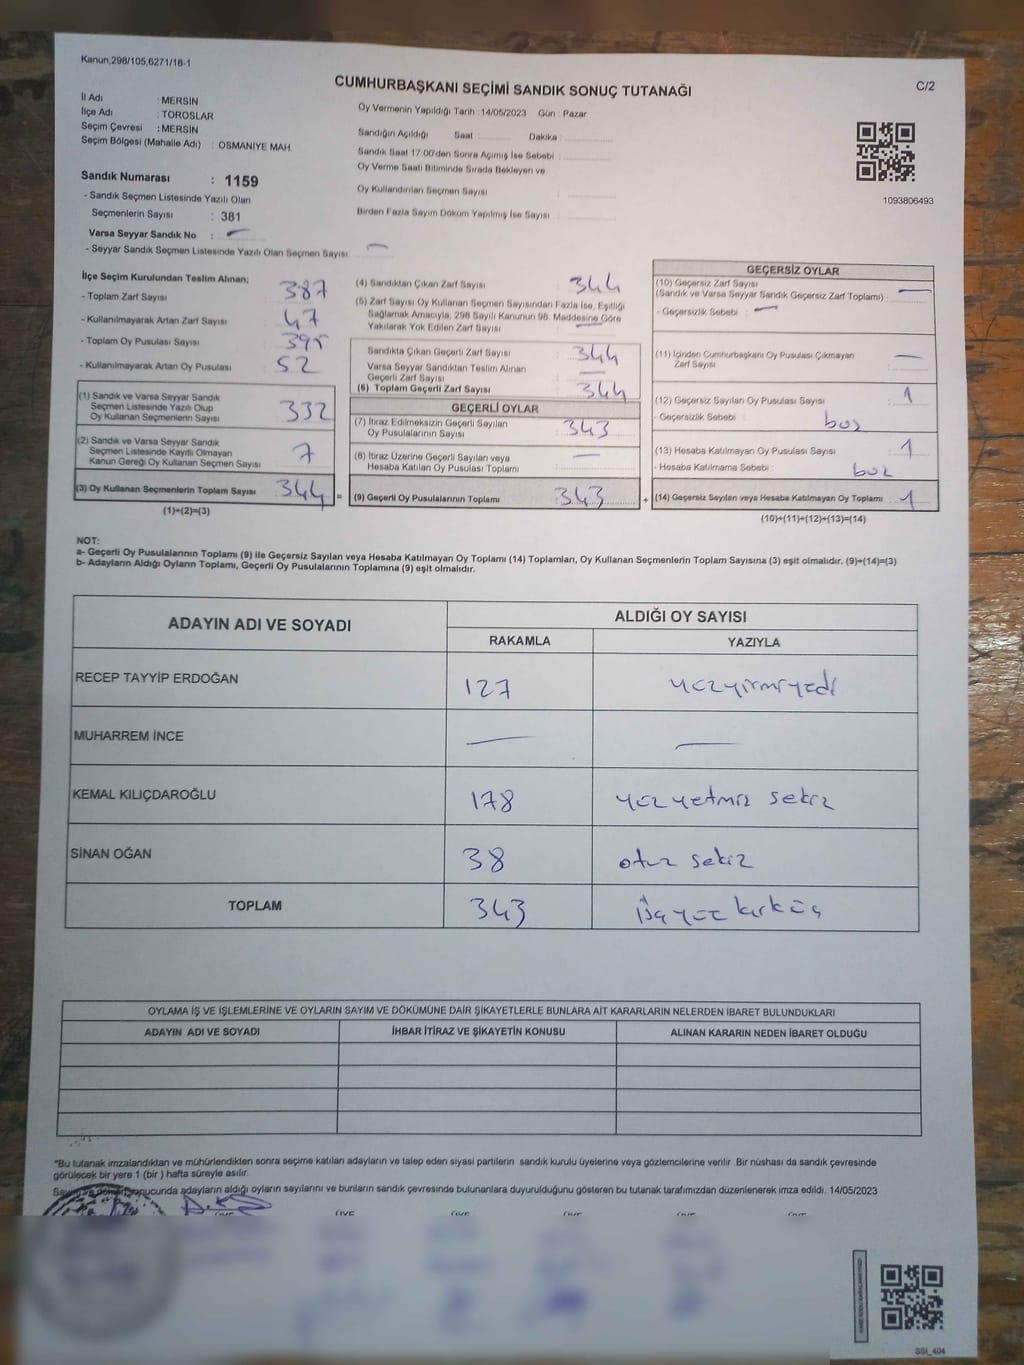 Kanun,298/105,6271/18-1
CUMHURBAŞKANI SEÇİMİ SANDIK SONUÇ TUTANAĞI
C/2
İl Adı : MERSİN
İlçe Adı : TOROSLAR
Seçim Çevresi : MERSİN
Seçim Bölgesi (Mahalle Adı) : OSMANİYE MAH.
Sandık Numarası : 1159
- Sandık Seçmen Listesinde Yazılı Olan
Seçmenlerin Sayısı : 381
Varsa Seyyar Sandık No : —
- Seyyar Sandık Seçmen Listesinde Yazılı Olan Seçmen Sayısı : —
Oy Vermenin Yapıldığı Tarih : 14/05/2023 Gün : Pazar
Sandığın Açıldığı Saat Dakika
Sandık Saat 17.00'den Sonra Açımış İse Sebebi :
Oy Verme Saati Bitiminde Sırada Bekleyen ve
Oy Kullandırılan Seçmen Sayısı
Birden Fazla Sayım Döküm Yapılmış İse Sayısı :
1093806493
İlçe Seçim Kurulundan Teslim Alınan;
- Toplam Zarf Sayısı 387
- Kullanılmayarak Artan Zarf Sayısı 47
- Toplam Oy Pusulası Sayısı 395
- Kullanılmayarak Artan Oy Pusulası 52
(1) Sandık ve Varsa Seyyar Sandık
Seçmen Listesinde Yazılı Olup
Oy Kullanan Seçmenlerin Sayısı 332
(2) Sandık ve Varsa Seyyar Sandık
Seçmen Listesinde Kayıtlı Olmayan
Kanun Gereği Oy Kullanan Seçmen Sayısı 7
(3) Oy Kullanan Seçmenlerin Toplam Sayısı 344 =
(1)+(2)=(3)
(4) Sandıktan Çıkan Zarf Sayısı 344
(5) Zarf Sayısı Oy Kullanan Seçmen Sayısından Fazla İse, Eşitliği
Sağlamak Amacıyla; 298 Sayılı Kanunun 98. Maddesine Göre
Yakılarak Yok Edilen Zarf Sayısı —
Sandıkta Çıkan Geçerli Zarf Sayısı 344
Varsa Seyyar Sandıktan Teslim Alınan
Geçerli Zarf Sayısı —
(6) Toplam Geçerli Zarf Sayısı 344
GEÇERLİ OYLAR
(7) İtiraz Edilmeksizin Geçerli Sayılan
Oy Pusulalarının Sayısı 343
(8) İtiraz Üzerine Geçerli Sayılan veya
Hesaba Katılan Oy Pusulası Toplamı —
(9) Geçerli Oy Pusulalarının Toplamı 343 +
GEÇERSİZ OYLAR
(10) Geçersiz Zarf Sayısı
(Sandık ve Varsa Seyyar Sandık Geçersiz Zarf Toplamı) : —
- Geçersizlik Sebebi : —
(11) İçinden Cumhurbaşkanı Oy Pusulası Çıkmayan
Zarf Sayısı —
(12) Geçersiz Sayılan Oy Pusulası Sayısı : 1
- Geçersizlik Sebebi : boş
(13) Hesaba Katılmayan Oy Pusulası Sayısı : 1
- Hesaba Katılmama Sebebi :
(14) Geçersiz Sayılan veya Hesaba Katılmayan Oy Toplamı : 1
(10)+(11)+(12)+(13)=(14)
NOT:
a- Geçerli Oy Pusulalarının Toplamı (9) ile Geçersiz Sayılan veya Hesaba Katılmayan Oy Toplamı (14) Toplamları, Oy Kullanan Seçmenlerin Toplam Sayısına (3) eşit olmalıdır. (9)+(14)=(3)
b- Adayların Aldığı Oyların Toplamı, Geçerli Oy Pusulalarının Toplamına (9) eşit olmalıdır.
ADAYIN ADI VE SOYADI
ALDIĞI OY SAYISI
RAKAMLA YAZIYLA
RECEP TAYYİP ERDOĞAN 127 yüzyirmiyedi
MUHARREM İNCE — —
KEMAL KILIÇDAROĞLU 178 yüzyetmiz sekiz
SİNAN OĞAN 38 otuz sekiz
TOPLAM 343 üçyüz kırküç
OYLAMA İŞ VE İŞLEMLERİNE VE OYLARIN SAYIM VE DÖKÜMÜNE DAİR ŞİKAYETLERLE BUNLARA AİT KARARLARIN NELERDEN İBARET BULUNDUKLARI
ADAYIN ADI VE SOYADI İHBAR İTİRAZ VE ŞİKAYETİN KONUSU ALINAN KARARIN NEDEN İBARET OLDUĞU
*Bu tutanak imzalandıktan ve mühürlendikten sonra seçime katılan adayların ve talep eden siyasi partilerin sandık kurulu üyelerine veya gözlemcilerine verilir. Bir nüshası da sandık çevresinde
görülecek bir yere 1 (bir ) hafta süreyle asılır.
sonucunda adayların aldığı oyların sayılarını ve bunların sandık çevresinde bulunanlara duyurulduğunu gösteren bu tutanak tarafımızdan düzenlenerek imza edildi. 14/05/2023